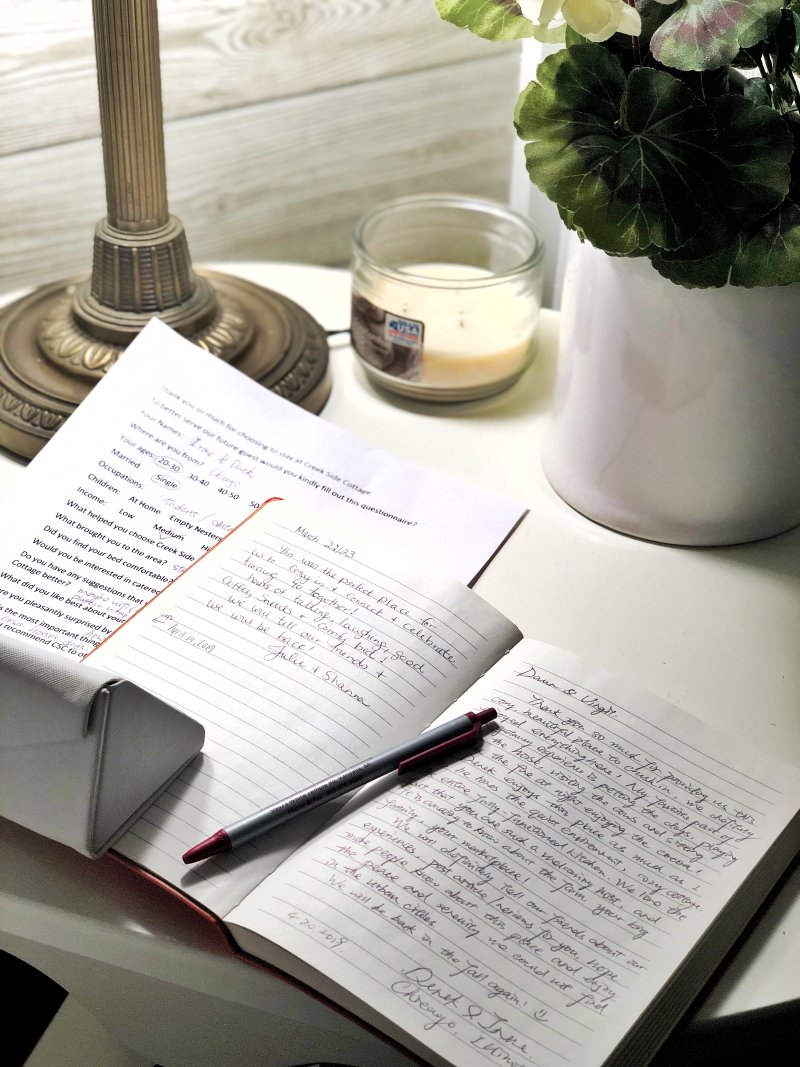 USA
Thank you so much for choosing to stay at Creek Side Cottage
To better serve our future guest would you kindly fill out this questionnaire?
Your Names: Irene & Derek
Where are you from? Chicago
Your ages: 20-30 30-40 40-50 50
Married Single
Occupations: students
Children: At Home Empty Nesters
Income: Low Medium Hi
What helped you choose Creek Side
What brought you to the area?
Did you find your bed comfortable?
Would you be interested in catered
Do you have any suggestions that
Cottage better?
What did you like best about your
ere you pleasantly surprised by
s the most important thing
ou recommend CSC to ot
March 29/23
This was the perfect place for
us to cozy in & connect & celebrate
turning 40 together!
hours of talking, laughing, good
coffee, snacks & comfy beds!
We will tell our friends &
we will be back!
Julie & Shanna
April 14, 2019
Dawn & Virgil.
Thank you so much for providing us this
cozy, beautiful place to check in. We definitely
enjoyed everything here! My favorite part of
experience is petting the dogs, playing
the host, visiting the cows and sitting
the fire at night enjoying the cocoa!
Derek enjoys this place as much as I
he loves the quiet environment, cozy cotton,
entire fully functioned kitchen. We love the
that you are such a welcoming host, and
is amazing to know about the farm, your big
family, your marketplace!
We will definitely tell our friends about our
experiences, post article/reviews to you, hope
more people know about this place and enjoy
the peace and serenity we could not find
in the urban cities
We will be back in the fall again!
4.20.2019
Derek & Irene
Chicago, Illinoi